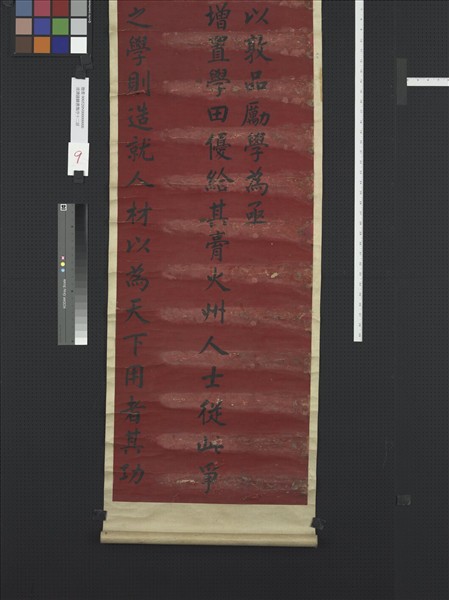 以敦品勵學為亟
增置學田優給其膏火州人士從此爭
之學則造就人材以為天下用者其功
9